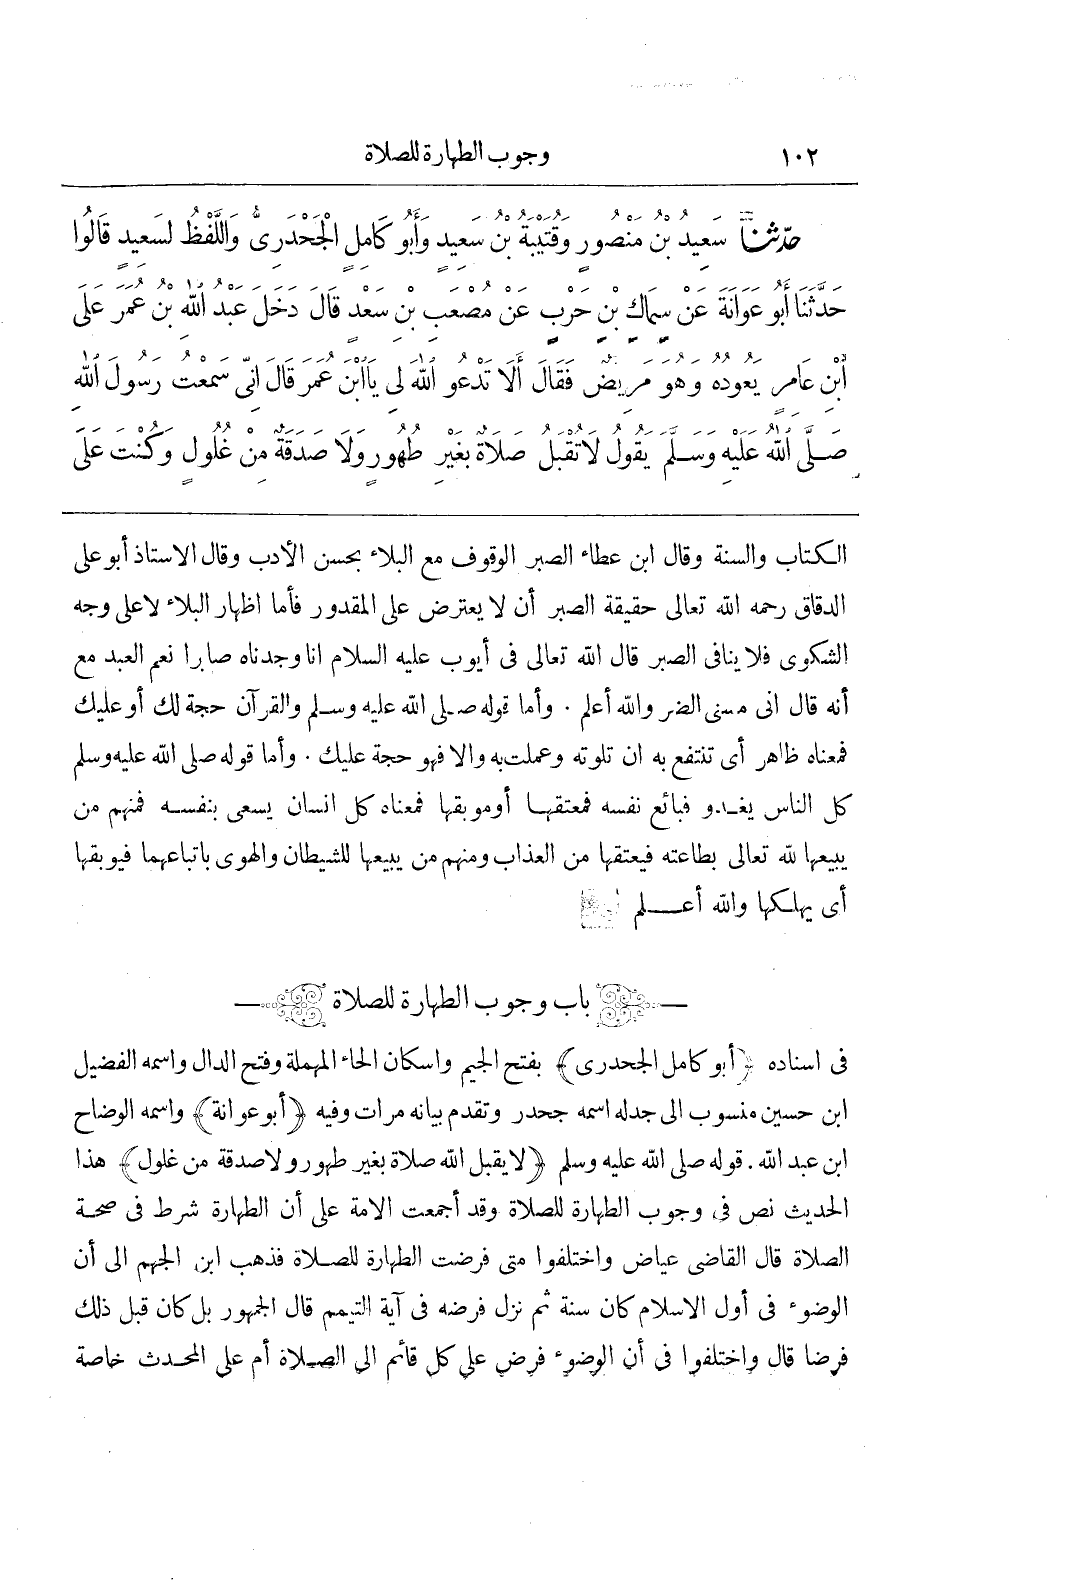 ١٠٢ وجوب الطهارة للصلاة
حدّثنا سَعِيدُ بْنُ مَنْصُورٍ وَقُتَيْبَةُ بْنُ سَعِيدٍ وَأَبُو كَامِلٍ الْجَحْدَرِىُّ وَاللَّفْظُ لِسَعِيدٍ قَالُوا
حَدَّثَنَا أَبُو عَوَانَةَ عَنْ سِمَاكِ بْنِ حَرْبٍ عَنْ مُصْعَبِ بْنِ سَعْدٍ قَالَ دَخَلَ عَبْدُ اللهِ بْنُ عُمَرَ عَلَى
ابْنِ عَامِرٍ يَعُودُهُ وَهُوَ مَرِيضٌ فَقَالَ أَلَا تَدْعُو اللهَ لِى يَاابْنَ عُمَرَ قَالَ إنِّى سَمِعْتُ رَسُولَ اللهِ
صَلَّى اللهُ عَلَيْهِ وَسَلَّمَ يَقُولُ لَاتُقْبَلُ صَلَاةٌ بِغَيْرِ طُهُورٍ وَلَا صَدَقَةٌ مِنْ غُلُولٍ وَكُنْتَ عَلَى
الكتاب والسنة وقال ابن عطاء الصبر الوقوف مع البلاء بحسن الأدب وقال الاستاذ أبو على
الدقاق رحمه الله تعالى حقيقة الصبر أن لا يعترض على المقدور فأما اظهار البلاء لا على وجه
الشكوى فلا ينافى الصبر قال الله تعالى فى أيوب عليه السلام انا وجدناه صابرا نعم العبد مع
أنه قال انى مسنى الضر والله أعلم . وأما قوله صلى الله عليه وسلم والقرآن حجة لك أو عليك
فمعناه ظاهر أى تنتفع به ان تلوته وعملت به والا فهو حجة عليك . وأما قوله صلى الله عليه وسلم
كل الناس يغدو فبائع نفسه فمعتقها أوموبقها فمعناه كل انسان يسعى بنفسه فمنهم من
يبيعها لله تعالى بطاعته فيعتقها من العذاب ومنهم من يبيعها للشيطان والهوى باتباعهما فيوبقها
أى يهلكها والله أعلم
باب وجوب الطهارة للصلاة
فى اسناده ﴿أبو كامل الجحدرى﴾ بفتح الجيم واسكان الحاء المهملة وفتح الدال واسمه الفضيل
ابن حسين منسوب الى جد له اسمه جحدر وتقدم بيانه مرات وفيه ﴿أبو عوانة﴾ واسمه الوضاح
ابن عبد الله . قوله صلى الله عليه وسلم ﴿لا يقبل الله صلاة بغير طهور ولا صدقة من غلول﴾ هذا
الحديث نص فى وجوب الطهارة للصلاة وقد أجمعت الامة على أن الطهارة شرط فى صحة
الصلاة قال القاضى عياض واختلفوا متى فرضت الطهارة للصلاة فذهب ابن الجهم الى أن
الوضوء فى أول الاسلام كان سنة ثم نزل فرضه فى آية التيمم قال الجمهور بل كان قبل ذلك
فرضا قال واختلفوا فى أن الوضوء فرض على كل قائم الى الصلاة أم على المحدث خاصة